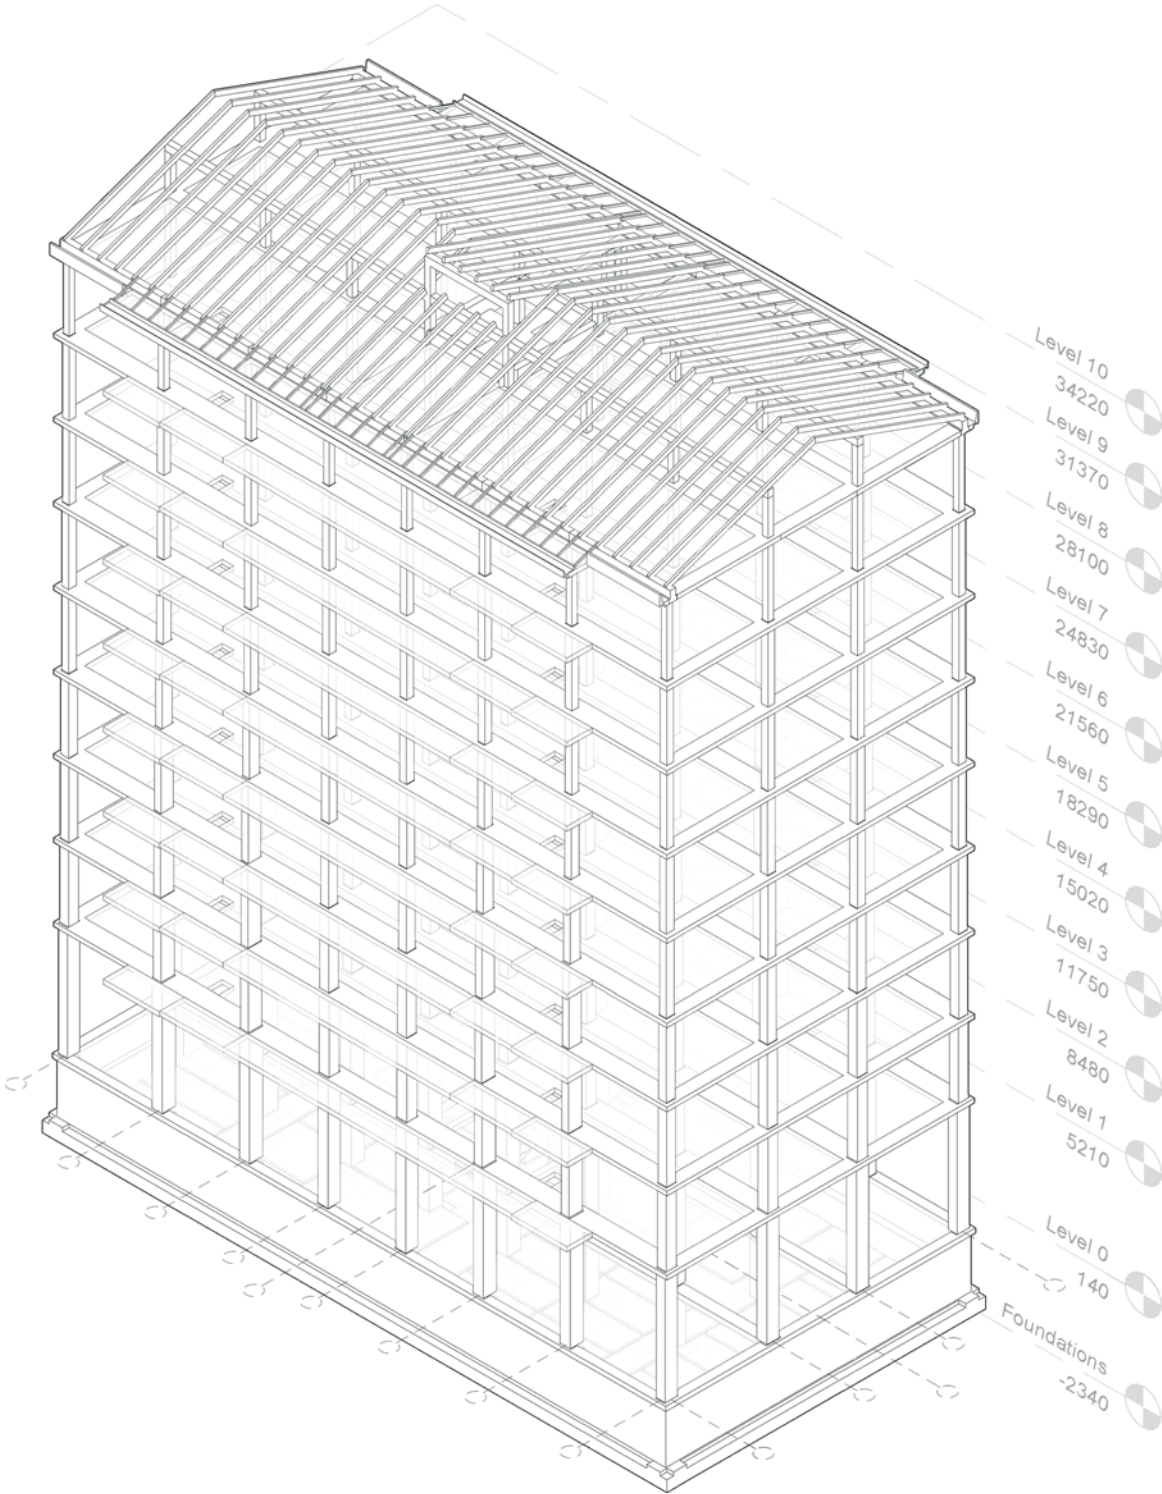 Level 10
34220
Level 9
31370
Level 8
28100
Level 7
24830
Level 6
21560
Level 5
18290
Level 4
15020
Level 3
11750
Level 2
8480
Level 1
5210
Level 0
140
Foundations
-2340